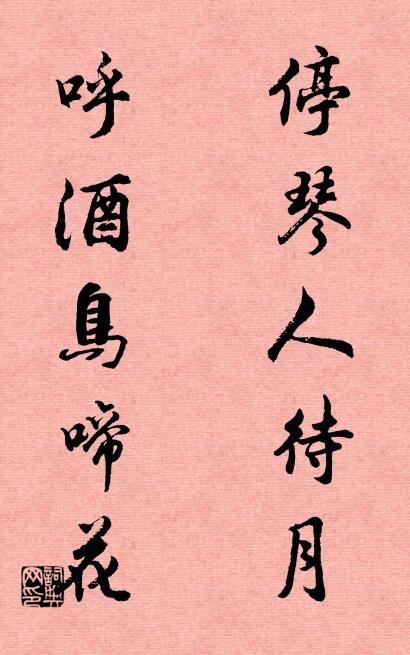 停琴人待月
呼酒鳥啼花